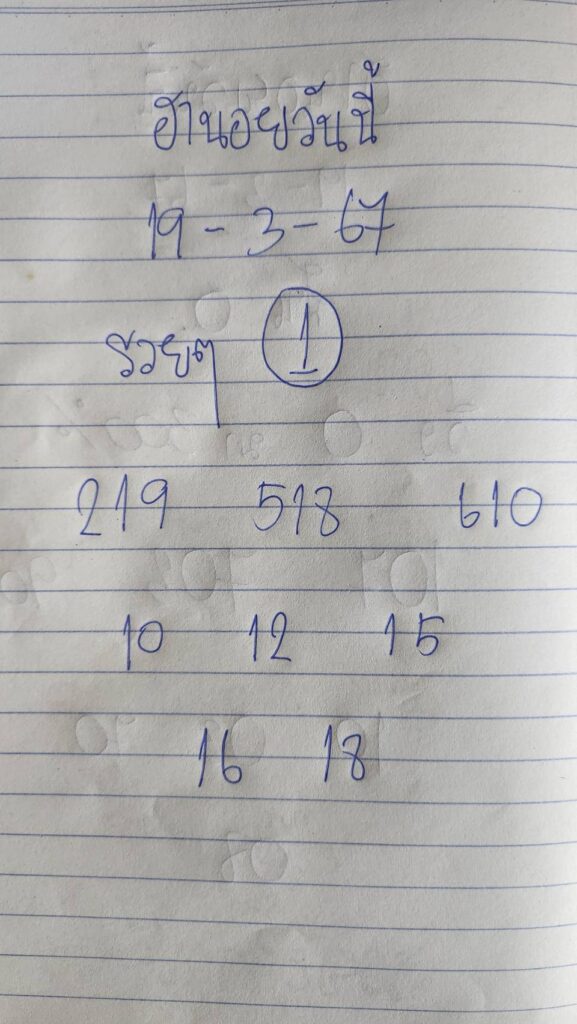 ฮานอยวันนี้
19 - 3 - 67
รวยๆ 1
219 518 610
10 12 15
16 18